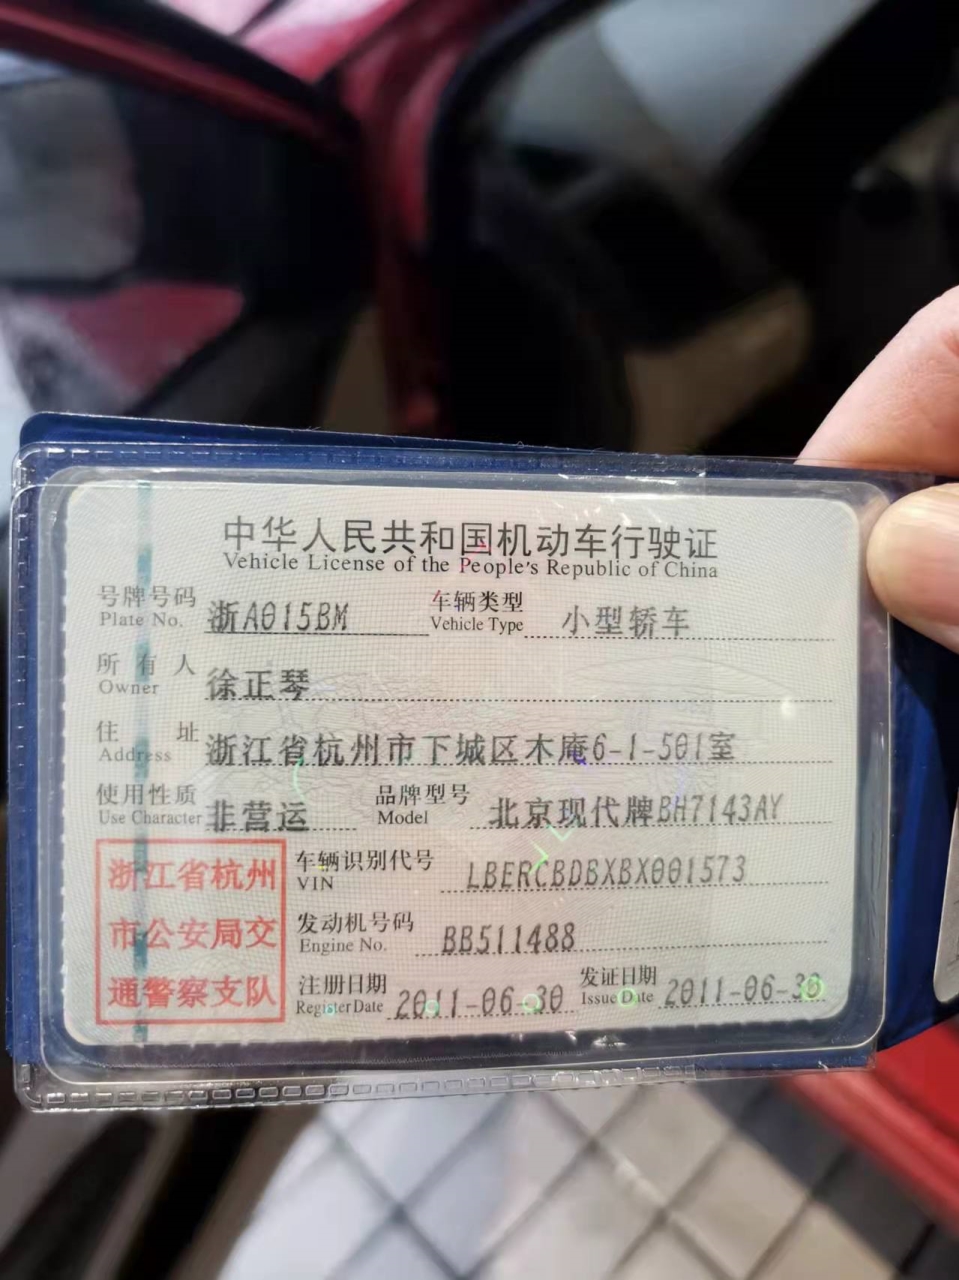 中华人民共和国机动车行驶证
Vehicle License of the People's Republic of China
号牌号码 浙A015BM 车辆类型 小型轿车
Plate No. Vehicle Type
所有人 徐正琴
Owner
住址 浙江省杭州市下城区木庵6-1-501室
Address
使用性质 非营运 品牌型号 北京现代牌BH7143AY
Use Character Model
浙江省杭州
市公安局交
通警察支队
车辆识别代号 LBERCBDBXBX001573
VIN
发动机号码 BB511488
Engine No.
注册日期 2011-06-30 发证日期 2011-06-30
Register Date Issue Date